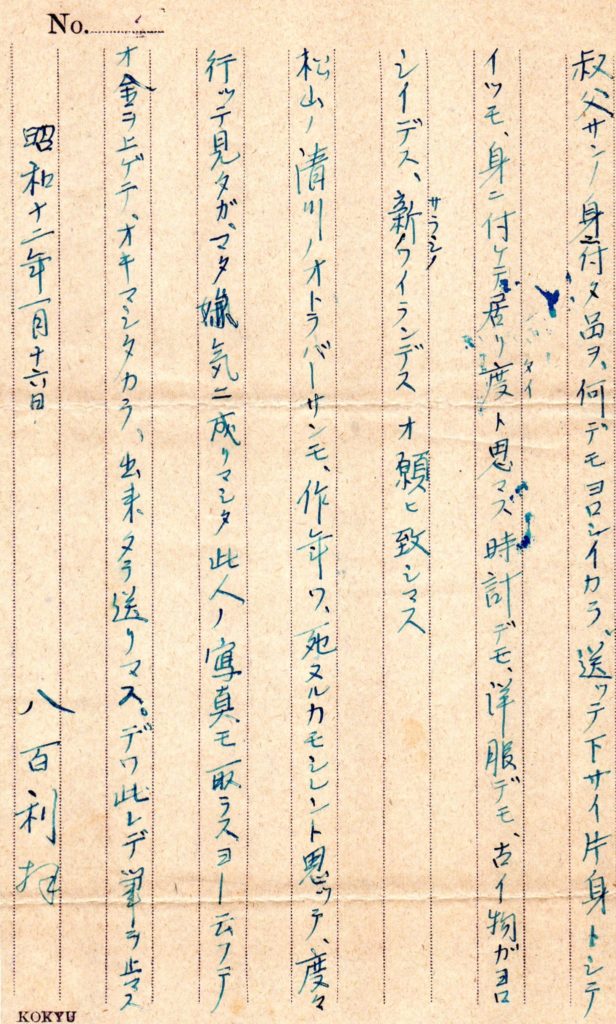 No.
叔父サンノ身ニ付タ品ヲ、何デモヨロシイカラ、送ッテ下サイ片身トシテ
イツモ、身ニ付ケテ居リ度ト思マス 時計デモ、洋服デモ、古イ物ガヨロ
タイ
シイデス、新ノワイランデス オ願ヒ致シマス
サラシノ
松山ノ清川ノオトラバーサンモ、作年ワ、死ヌルカモシレント思ッテ、度々
行ッテ見タガ、マタ 気ニ成リマシタ 此人ノ寫真モ取ラスヨー云フテ
オ金ヲ上ゲテ、オキマシタカラ、出来タラ送リマス。デワ此レデ筆ヲ止マス
昭和十二年一月十六日
八百利拝
KOKYU